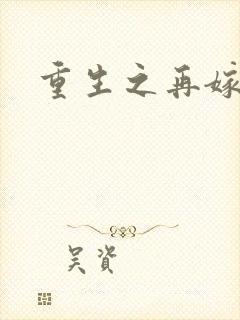 重生之再嫁
吴资